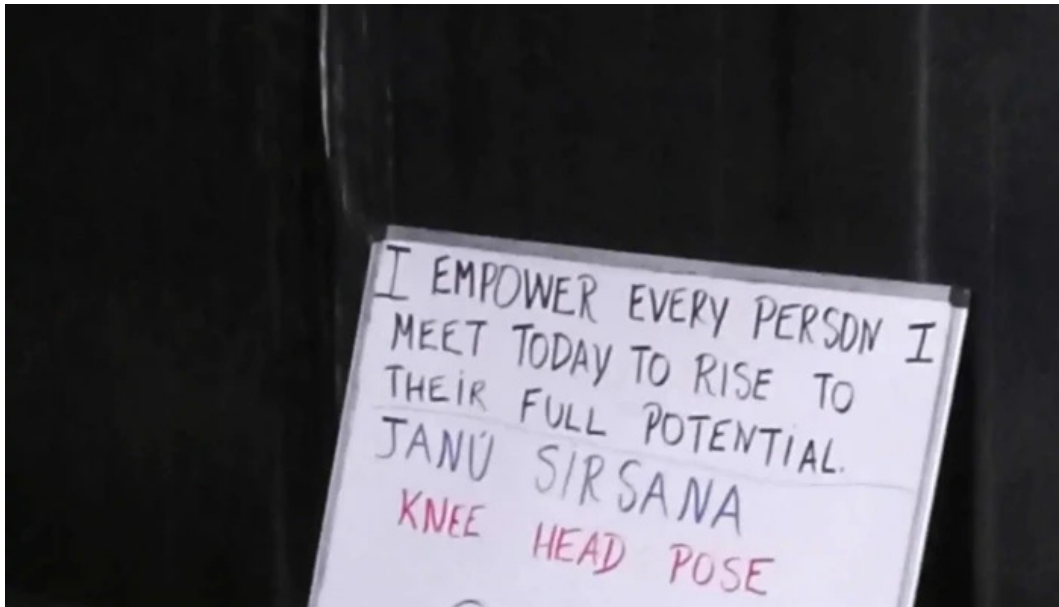 I EMPOWER EVERY PERSON I
MEET TODAY TO RISE TO
THEiR FULL POTENTiAL.
JANÚ SIRSANA
KNEE HEAD POSE